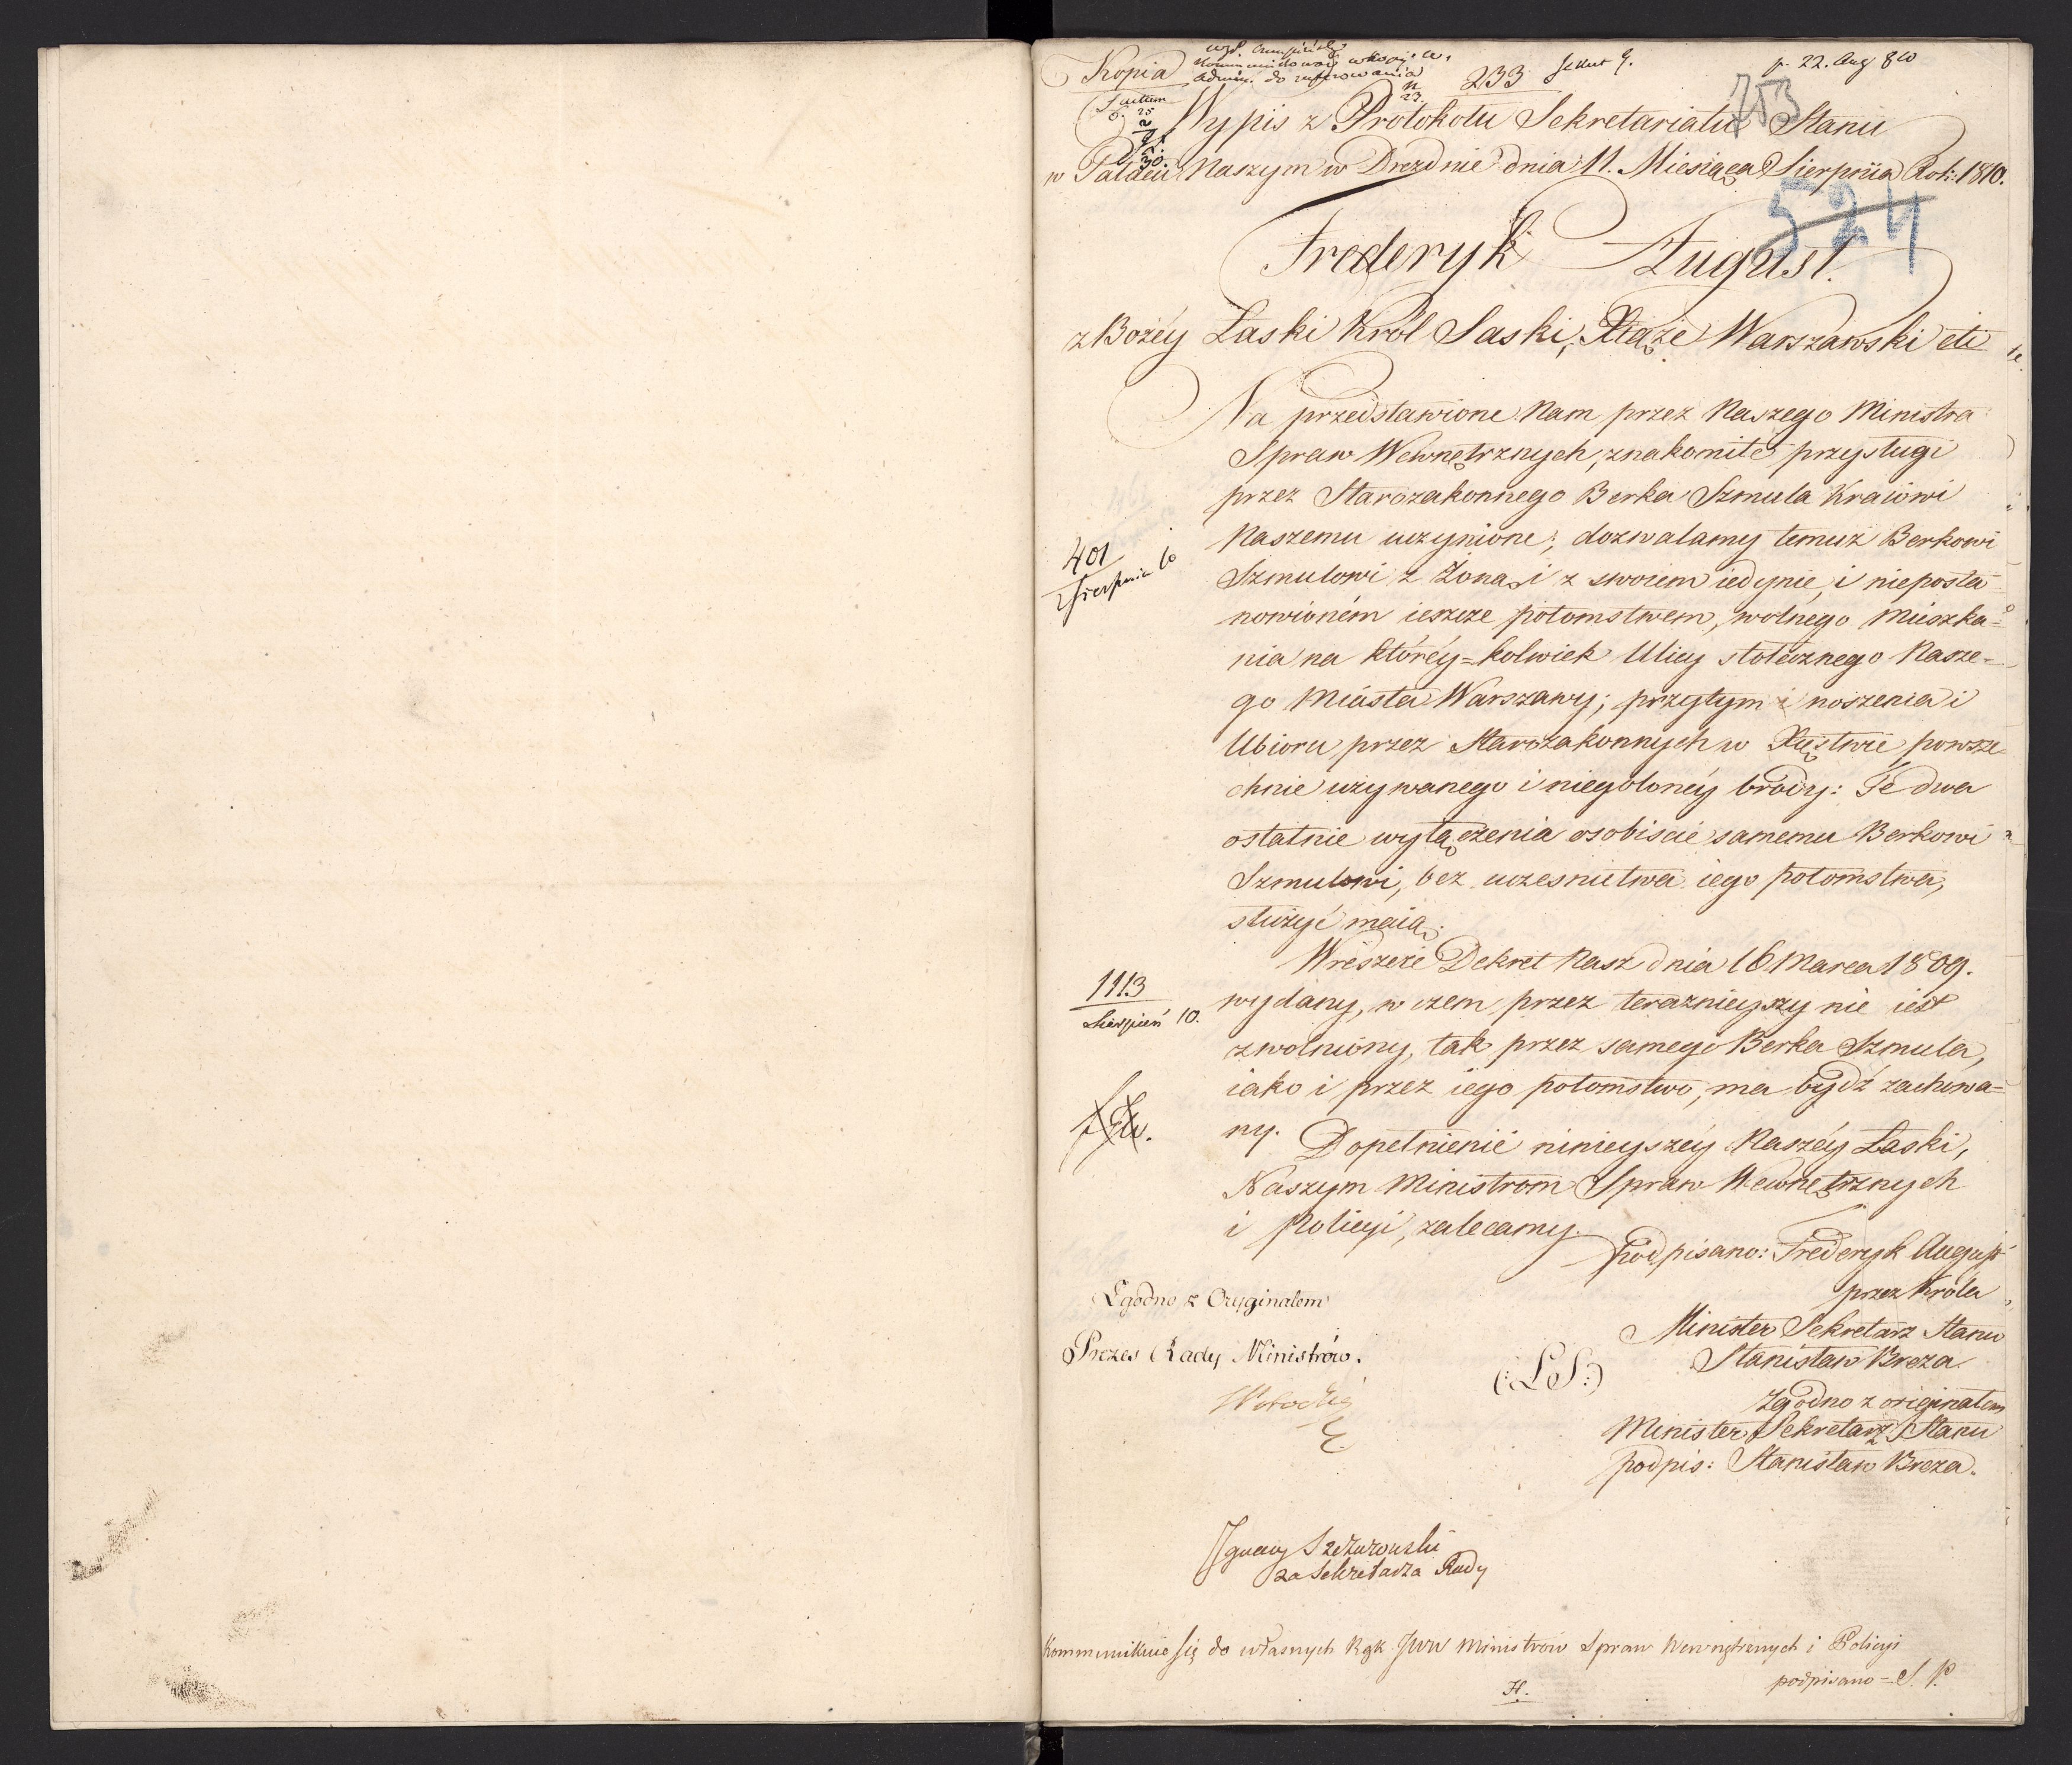 Kopia
233
p. 22. Aug 810
753
Wypis z Protokołu Sekretariatu Stanu
w Pałacu Naszym w Dreźdnie dnia 11. Miesiąca Sierpnia Rok: 1810.
524
Frederyk August.
z Bożéy Łaski Król Saski, Xiąże Warszawski etc
Na przedstawione Nam przez Naszego Ministra
Spraw Wewnętrznych, znakomite przysługi
przez Starozakonnego Berka Szmula Kraiowi
Naszemu uczynione; dozwalamy temuż Berkowi
Szmulowi z Żoną i z swoiem iedynie, i nieposta-
nowioném ieszcze potomstwem, wolnego Mieszka=
nia na któréy=kolwiek Ulicy stołecznego Nasze-
go Miasta Warszawy; przytym i noszenia i
Ubioru przez Starozakonnych w Xięstwie powsze-
chnie używanego i niegoloney brody: Te dwa
ostatnie wyłączenia osobiscie samemu Berkowi
Szmulowi, bez uczesnictwa iego potomstwa,
służyć maią.
401
Sierpnia 10
Wreszcie Dekret Nasz dnia 16 Marca 1809.
wydany, w czem przez teraznieyszy nie iest
zwolniony, tak przez samego Berka Szmula,
iako i przez iego potomstwo, ma bydź zachowa=
ny.
1113
Sierpień 10.
Dopełnienié ninieyszéy Naszéy Łaski,
Naszym Ministrom Spraw Wewnętrznych
i Policyi, zalecamy.
podpisano: Frederyk August
przez Króla
Minister Sekretarz Stanu
Stanisław Breza
(:LS:)
Zgodno z originałem
Minister Sekretarz Stanu
podpis: Stanisław Breza.
Zgodno z Oryginałem
Prezes Rady Ministrów.
Ignacy
za Sekretarza Rady
Kommunikuie się do własnych Rąk JWW Ministrów Spraw Wewnętrznych i Policyi
podpisano = S. P.